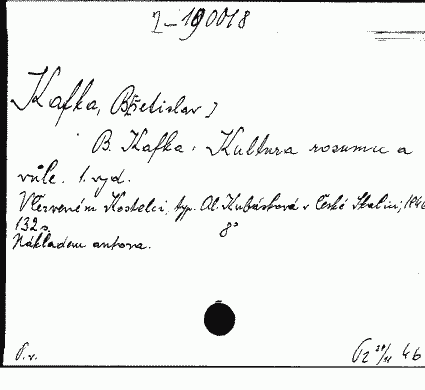 Kafka, Břetislav]
B. Kafka: Kultura rozumu a
vůle. 1. vyd.
V Červeném Kostelci, typ. Al. Kubásková v České Skalici, 1946
132 s. 8°
Nákladem autora.